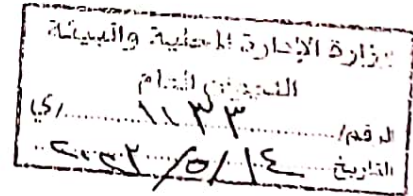 وزارة الإدارة المحلية والبيئة
العام
الرقم/ ١١٣٣ /ي
التاريخ ١٤/٥/